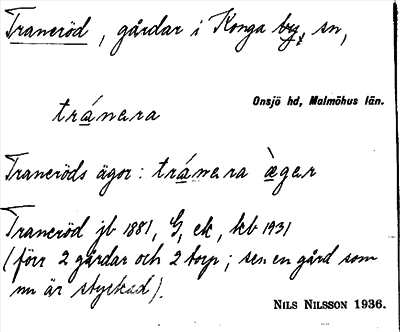 Traneröd, gårdar i Konga by, sn,
Onsjö hd, Malmöhus län.
tránara
Traneröds ägor: tránara àgar
Traneröd jb 1881, G, ek, kb 1931
(förr 2 gårdar och 2 torp; sen en gård som
nu är styckad).
NILS NILSSON 1936.